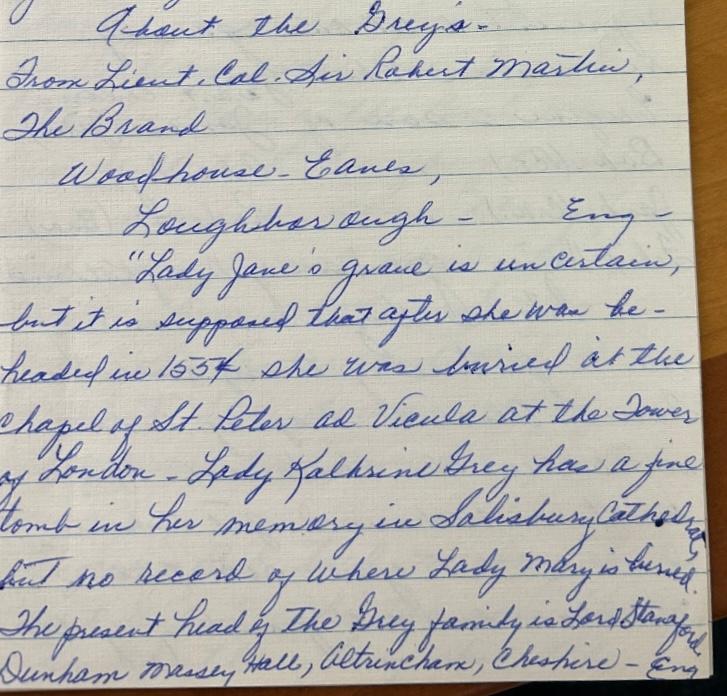 About the Grey's.
From Lieut. Col. Sir Robert Martin,
The Brand
Woodhouse-Eaves,
Loughborough - Eng-
"Lady Jane's grave is uncertain,
but it is supposed that after she was be-
headed in 1554 she was buried at the
chapel of St. Peter ad Vicula at the Tower
of London - Lady Kathrine Grey has a fine
tomb in her memory in Salisbury Cathedral,
but no record of where Lady Mary is buried.
The present head of the Grey family is Lord Stamford
Dunham Massey Hall, Altrincham, Cheshire - Eng